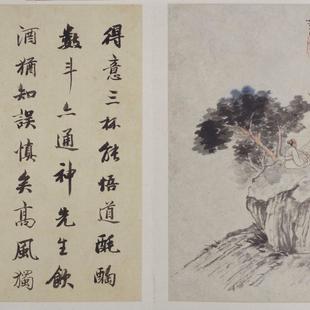 得意三杯能悟道酕醄
數斗亦通神先生飲
酒猶知誤慎矣高風獨